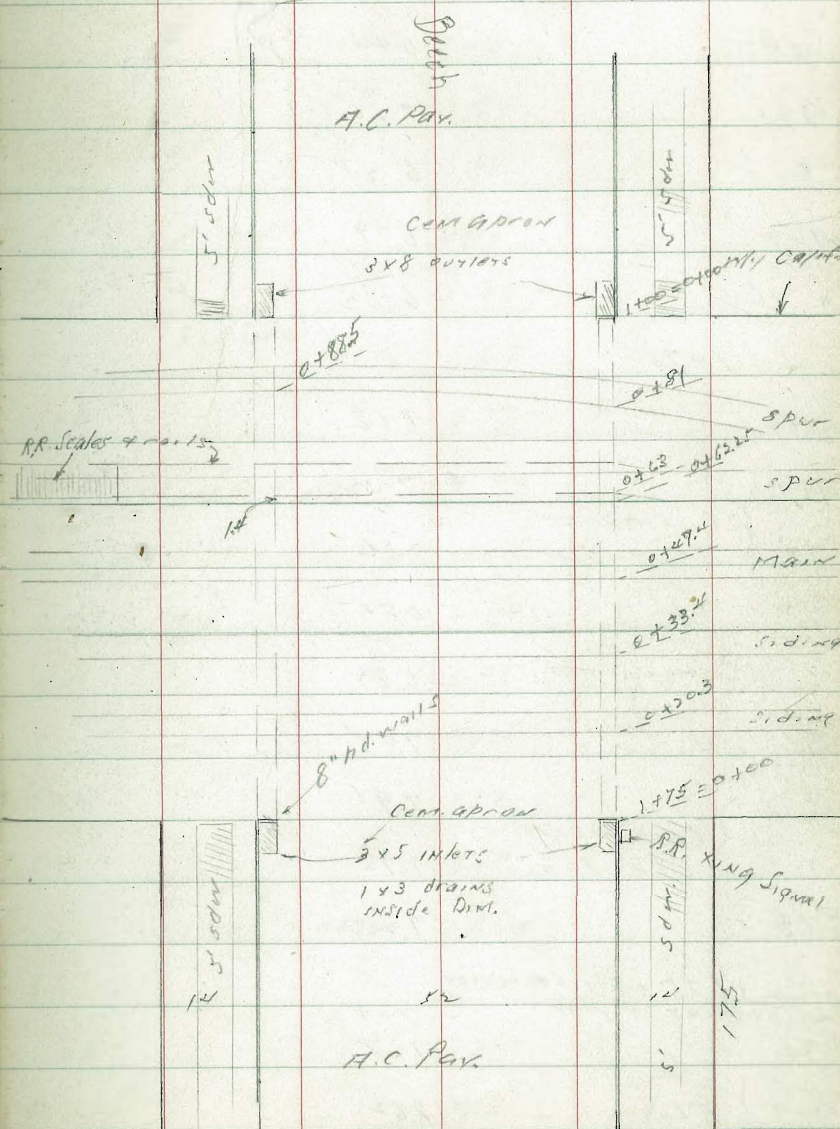 Beech
A.C. Pav.
5' sdw
5' sdw
Cem apron
3 x 8 outlets
1+00=0+00
0+88.5
0+81
spur
R.R. Scales & rails
0+63 - 0+62.25
spur
1.4
0+47.4
Main
0+33.4
Siding
0+20.3
Siding
8" Hd. walls
1+75=0+00
Cem. apron
3 x 5 inlets
R.R. XING Signal
1 x 3 drains
inside Dim.
5' sdw
5' sdw.
14
52
14
175
A.C. Pav.